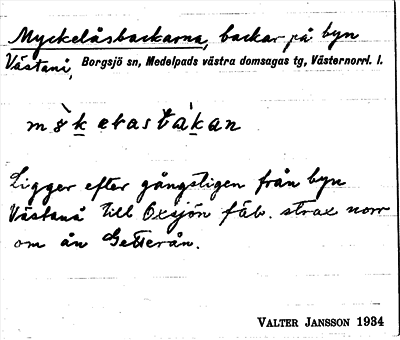 Myckelåsbackarna, backar på byn
Västanå, Borgsjö sn, Medelpads västra domsagas tg, Västernorrl. l.
Ligger efter gångstigen från byn
Västanå till Oxsjön fäb. strax norr
om ån Getterån.
VALTER JANSSON 1934